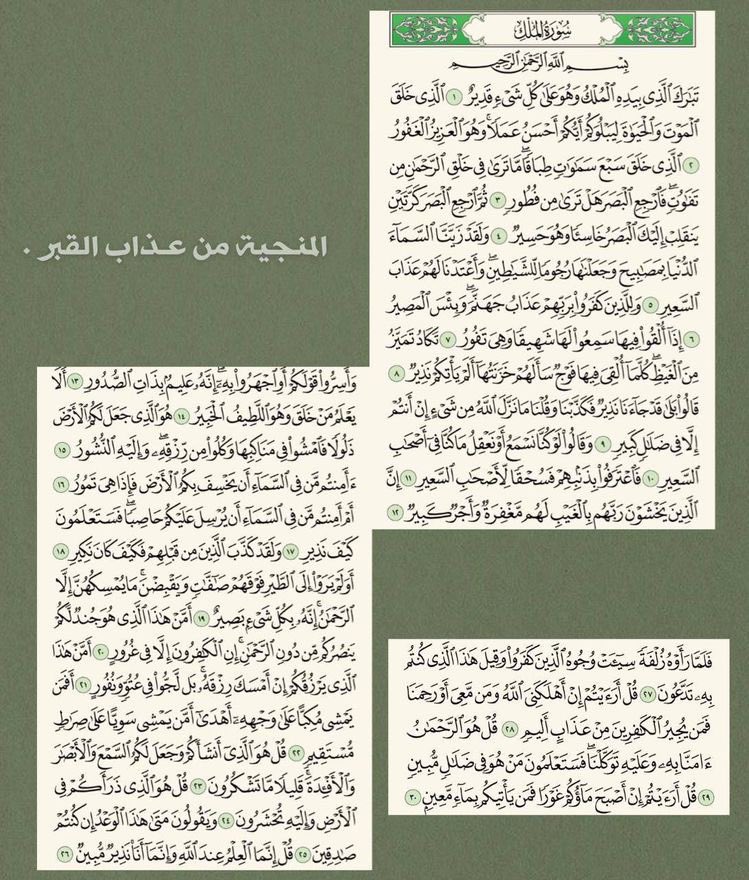 سُورَةُ المُلْكِ
بِسْمِ ٱللَّهِ ٱلرَّحْمَٰنِ ٱلرَّحِيمِ
تَبَٰرَكَ ٱلَّذِي بِيَدِهِ ٱلْمُلْكُ وَهُوَ عَلَىٰ كُلِّ شَيْءٍ قَدِيرٌ ١ ٱلَّذِي خَلَقَ
ٱلْمَوْتَ وَٱلْحَيَوٰةَ لِيَبْلُوَكُمْ أَيُّكُمْ أَحْسَنُ عَمَلًا ۚ وَهُوَ ٱلْعَزِيزُ ٱلْغَفُورُ
٢ ٱلَّذِي خَلَقَ سَبْعَ سَمَٰوَٰتٍ طِبَاقًا ۖ مَّا تَرَىٰ فِي خَلْقِ ٱلرَّحْمَٰنِ مِن
تَفَٰوُتٍ ۖ فَٱرْجِعِ ٱلْبَصَرَ هَلْ تَرَىٰ مِن فُطُورٍ ٣ ثُمَّ ٱرْجِعِ ٱلْبَصَرَ كَرَّتَيْنِ
يَنقَلِبْ إِلَيْكَ ٱلْبَصَرُ خَاسِئًا وَهُوَ حَسِيرٌ ٤ وَلَقَدْ زَيَّنَّا ٱلسَّمَآءَ
ٱلدُّنْيَا بِمَصَٰبِيحَ وَجَعَلْنَٰهَا رُجُومًا لِّلشَّيَٰطِينِ ۖ وَأَعْتَدْنَا لَهُمْ عَذَابَ
ٱلسَّعِيرِ ٥ وَلِلَّذِينَ كَفَرُوا۟ بِرَبِّهِمْ عَذَابُ جَهَنَّمَ ۖ وَبِئْسَ ٱلْمَصِيرُ
٦ إِذَآ أُلْقُوا۟ فِيهَا سَمِعُوا۟ لَهَا شَهِيقًا وَهِيَ تَفُورُ ٧ تَكَادُ تَمَيَّزُ
مِنَ ٱلْغَيْظِ ۖ كُلَّمَآ أُلْقِيَ فِيهَا فَوْجٌ سَأَلَهُمْ خَزَنَتُهَآ أَلَمْ يَأْتِكُمْ نَذِيرٌ ٨
قَالُوا۟ بَلَىٰ قَدْ جَآءَنَا نَذِيرٌ فَكَذَّبْنَا وَقُلْنَا مَا نَزَّلَ ٱللَّهُ مِن شَيْءٍ إِنْ أَنتُمْ
إِلَّا فِي ضَلَٰلٍ كَبِيرٍ ٩ وَقَالُوا۟ لَوْ كُنَّا نَسْمَعُ أَوْ نَعْقِلُ مَا كُنَّا فِيٓ أَصْحَٰبِ
ٱلسَّعِيرِ ١٠ فَٱعْتَرَفُوا۟ بِذَنۢبِهِمْ فَسُحْقًا لِّأَصْحَٰبِ ٱلسَّعِيرِ ١١ إِنَّ
ٱلَّذِينَ يَخْشَوْنَ رَبَّهُم بِٱلْغَيْبِ لَهُم مَّغْفِرَةٌ وَأَجْرٌ كَبِيرٌ ١٢
المنجية من عذاب القبر .
وَأَسِرُّوا۟ قَوْلَكُمْ أَوِ ٱجْهَرُوا۟ بِهِۦٓ ۖ إِنَّهُۥ عَلِيمٌۢ بِذَاتِ ٱلصُّدُورِ ١٣ أَلَا
يَعْلَمُ مَنْ خَلَقَ وَهُوَ ٱللَّطِيفُ ٱلْخَبِيرُ ١٤ هُوَ ٱلَّذِي جَعَلَ لَكُمُ ٱلْأَرْضَ
ذَلُولًا فَٱمْشُوا۟ فِي مَنَاكِبِهَا وَكُلُوا۟ مِن رِّزْقِهِۦ ۖ وَإِلَيْهِ ٱلنُّشُورُ ١٥
ءَأَمِنتُم مَّن فِي ٱلسَّمَآءِ أَن يَخْسِفَ بِكُمُ ٱلْأَرْضَ فَإِذَا هِيَ تَمُورُ ١٦
أَمْ أَمِنتُم مَّن فِي ٱلسَّمَآءِ أَن يُرْسِلَ عَلَيْكُمْ حَاصِبًا ۖ فَسَتَعْلَمُونَ
كَيْفَ نَذِيرِ ١٧ وَلَقَدْ كَذَّبَ ٱلَّذِينَ مِن قَبْلِهِمْ فَكَيْفَ كَانَ نَكِيرِ ١٨
أَوَلَمْ يَرَوْا۟ إِلَى ٱلطَّيْرِ فَوْقَهُمْ صَٰٓفَّٰتٍ وَيَقْبِضْنَ ۚ مَا يُمْسِكُهُنَّ إِلَّا
ٱلرَّحْمَٰنُ ۚ إِنَّهُۥ بِكُلِّ شَيْءٍۭ بَصِيرٌ ١٩ أَمَّنْ هَٰذَا ٱلَّذِي هُوَ جُندٌ لَّكُمْ
يَنصُرُكُم مِّن دُونِ ٱلرَّحْمَٰنِ ۚ إِنِ ٱلْكَٰفِرُونَ إِلَّا فِي غُرُورٍ ٢٠ أَمَّنْ هَٰذَا
ٱلَّذِي يَرْزُقُكُمْ إِنْ أَمْسَكَ رِزْقَهُۥ ۚ بَل لَّجُّوا۟ فِي عُتُوٍّ وَنُفُورٍ ٢١ أَفَمَن
يَمْشِي مُكِبًّا عَلَىٰ وَجْهِهِۦٓ أَهْدَىٰٓ أَمَّن يَمْشِي سَوِيًّا عَلَىٰ صِرَٰطٍ
مُّسْتَقِيمٍ ٢٢ قُلْ هُوَ ٱلَّذِيٓ أَنشَأَكُمْ وَجَعَلَ لَكُمُ ٱلسَّمْعَ وَٱلْأَبْصَٰرَ
وَٱلْأَفْـِٔدَةَ ۖ قَلِيلًا مَّا تَشْكُرُونَ ٢٣ قُلْ هُوَ ٱلَّذِي ذَرَأَكُمْ فِي
ٱلْأَرْضِ وَإِلَيْهِ تُحْشَرُونَ ٢٤ وَيَقُولُونَ مَتَىٰ هَٰذَا ٱلْوَعْدُ إِن كُنتُمْ
صَٰدِقِينَ ٢٥ قُلْ إِنَّمَا ٱلْعِلْمُ عِندَ ٱللَّهِ وَإِنَّمَآ أَنَا۠ نَذِيرٌ مُّبِينٌ ٢٦
فَلَمَّا رَأَوْهُ زُلْفَةً سِيٓـَٔتْ وُجُوهُ ٱلَّذِينَ كَفَرُوا۟ وَقِيلَ هَٰذَا ٱلَّذِي كُنتُم
بِهِۦ تَدَّعُونَ ٢٧ قُلْ أَرَءَيْتُمْ إِنْ أَهْلَكَنِيَ ٱللَّهُ وَمَن مَّعِيَ أَوْ رَحِمَنَا
فَمَن يُجِيرُ ٱلْكَٰفِرِينَ مِنْ عَذَابٍ أَلِيمٍ ٢٨ قُلْ هُوَ ٱلرَّحْمَٰنُ
ءَامَنَّا بِهِۦ وَعَلَيْهِ تَوَكَّلْنَا ۖ فَسَتَعْلَمُونَ مَنْ هُوَ فِي ضَلَٰلٍ مُّبِينٍ
٢٩ قُلْ أَرَءَيْتُمْ إِنْ أَصْبَحَ مَآؤُكُمْ غَوْرًا فَمَن يَأْتِيكُم بِمَآءٍ مَّعِينٍۭ ٣٠